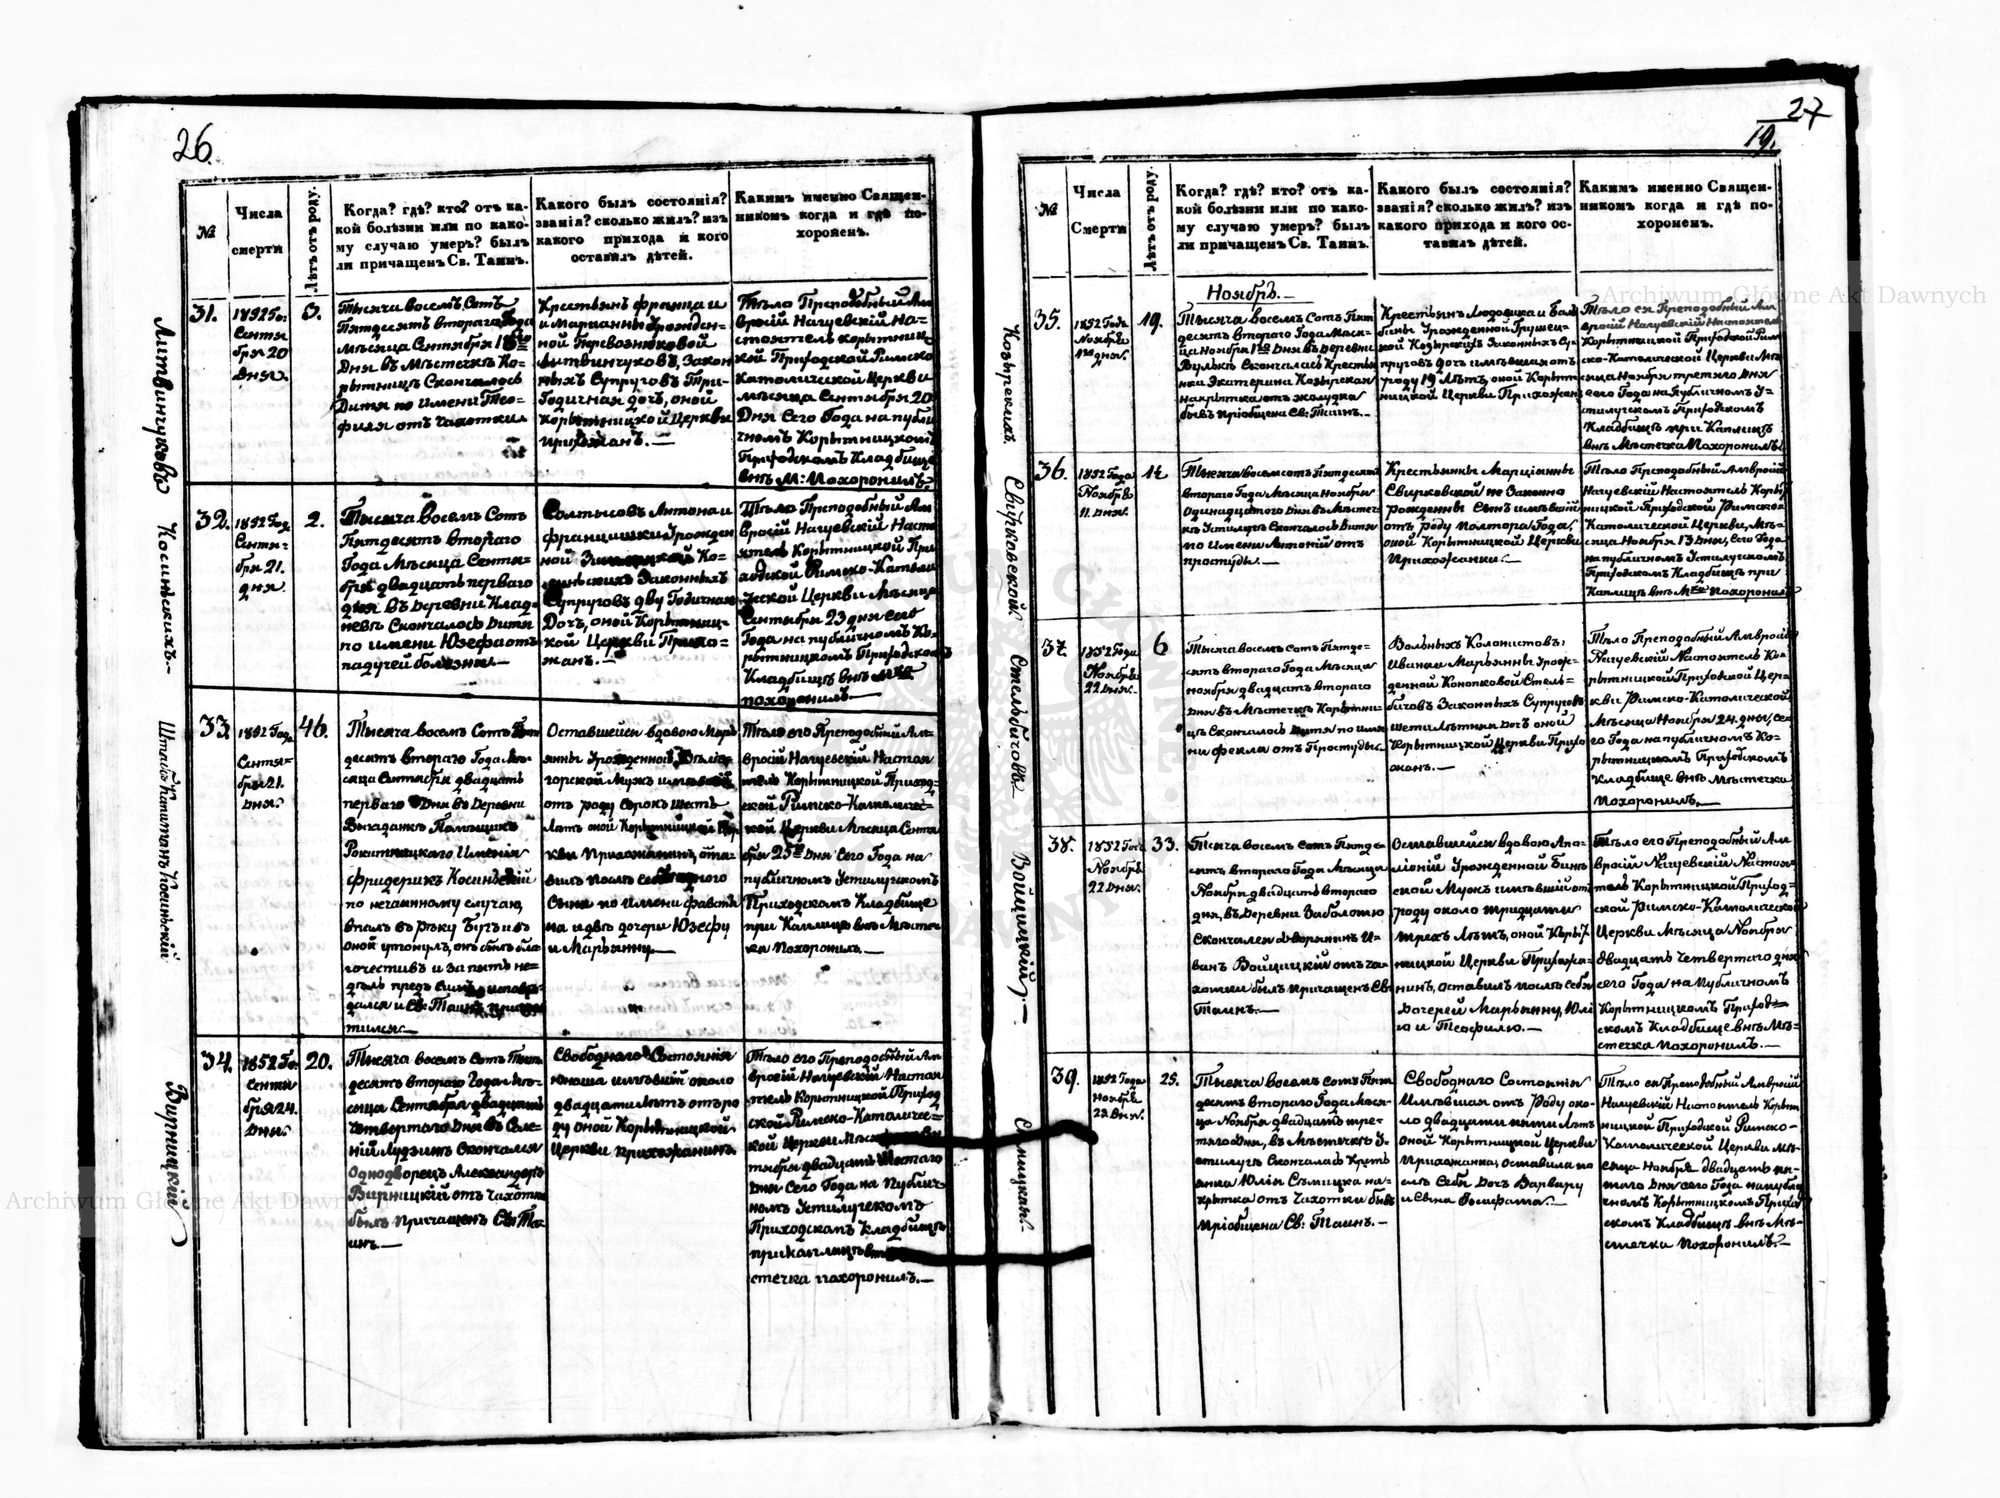 26.
№
Числа
смерти
Лѣтъ отъ роду.
Когда? гдѣ? кто? отъ ка-
кой болѣзни или по како-
му случаю умеръ? былъ
ли причащенъ Св. Таинъ.
Какого былъ состоянія?
званія? сколько жилъ? изъ
какого прихода и кого
оставилъ дѣтей.
Какимъ именно Священ-
никомъ когда и гдѣ по-
хороненъ.
Литвинчуковъ
31.
1852 Го:
Сентя
бря 20
Дня.
3.
Тысяча восемъ Сотъ
Пятдесятъ втораго Года
Мѣсяца Сентября
Дня въ Мѣстечкѣ Ко-
рытницѣ Скончалось
Дитя по имени Тео-
филя отъ Чахотки
Крестьянъ Франца и
и Маріанны Урожден-
ной Перевознюковой
Литвинчуковъ, Закон
ныхъ Супруговъ Три-
Годичная дочь, оной
Корытницкой Церкви
прихожанъ.—
Тѣло Преподобный Ам
вросій Нагуевскій На-
стоятель Корытниц
кой Приходской Римско
Католической Церкви
мѣсяца Сентября 20
Дня Сего Года на публи
чномъ Корытницкомъ
Приходскомъ Кладбище
внѣ М: Похоронилъ.
Косинѣскихъ.—
32.
1852 Год
Сентя-
бря 21.
дня
2.
Тысяча Восемъ Сотъ
Пятдесятъ втораго
Года Мѣсяца Сентя-
бря двадцать перваго
дня въ Деревни Клад-
невѣ Скончалось Дитя
по имени Юзефа отъ
падучей болезни.—
Солтысовъ Антона и
Францишки Урожден
ной Ко-
синѣскихъ Законныхъ
Супруговъ дву Годичная
Дочь, оной Корытниц-
кой Церкви Прихо-
жанъ.—
Тѣло Преподобный Ам
вросій Нагуевскій Насто
ятель Корытницкой При
ходской Римско-Католи
ческой Церкви Мѣсяца
Сентября 23 дня сего
Года на публичномъ Ко-
рытницкомъ Приходском
Кладбищѣ внѣ Мка
похоронилъ.—
Штабъ Капитанъ Косинѣскій
33.
1852 Года
Сентя-
бря 21.
дня.
46.
Тысяча восемъ Сотъ Пят
десятъ втораго Года Мѣ-
сяца Сентября двадцать
перваго Дня въ Деревни
Выгадакѣ Помѣщикъ
Имѣнія
Фридерикъ Косинѣскій
по нечаянному случаю,
впалъ въ рѣку Бугъ и въ
оной утонулъ, онъ былъ бла
гочестивъ и за пять не-
дѣль предъ Симъ исповѣ-
дался и Св. Таинъ
тился.—
Оставшейся вдовою Марь
янны Урожденной
горской Мужъ имѣвшій
отъ роду Сорокъ шесть
Лѣтъ оной Корытницкой Цер
кви Прихожанинъ, оста-
вилъ послѣ себя одного
Сына по имени
на и двѣ дочери Юзефу
и Марьянну.—
Тѣло его Преподобный Ам-
вросій Нагуевскій Настоя
тель Корытницкой Приход-
ской Римско-Католичес-
кой Церкви Мѣсяца Сентя
бря 25го Дня Сего Года на
публичномъ Устилугскомъ
Приходскомъ Кладбище
при Каплицѣ внѣ Мѣстеч
ка похоронилъ.—
Вирницкій
34.
1852 Го.
Сентя
бря 24.
Дня.
20.
Тысяча восемъ Сотъ Пять
десятъ втораго Года Мѣ-
сяца Сентября двадцать
Четвертаго Дня въ Селе-
ній Лудзинѣ Скончался
Однодворецъ Александеръ
Вирницкій отъ чахотки
былъ причащенъ Св: Та-
инъ.—
Свободнаго Состоянія
Юноша имѣвшій около
двадцати Лѣтъ отъ ро
ду оной Корытницкой
Церкви прихожанинъ.
Тѣло его Преподобный Ам
вросій Нагуевскій Настоя
тель Корытницкой Приход
ской Римско-Католичес-
кой Церкви
тября двадцать Шестаго
Дня Сего Года на Публич
номъ Устилугскомъ
Приходскомъ Кладбищѣ
при Каплицѣ внѣ
стечка похоронилъ.—
27
19.
№
Числа
Смерти
Лѣтъ отъ роду.
Когда? гдѣ? кто? отъ ка-
кой болѣзни или по како-
му случаю умеръ? былъ
ли причащенъ Св. Таинъ.
Какого былъ состоянія?
званія? сколько жилъ? изъ
какого прихода и кого ос-
тавилъ дѣтей.
Какимъ именно Священ-
никомъ когда и гдѣ по-
хороненъ.
Козырскихъ.
Ноябрь.—
35.
1852 Года
Ноября
1го дня.
19.
Тысяча восемъ Сотъ Пят
десятъ втораго Года Мѣся-
ца Ноября 1го Дня въ Деревни
Вулькѣ Скончалась Крестьян
нка Экатерина Козырская
накрытка отъ желудка
бывъ пріобщена Св: Таинъ.—
Крестьянъ Людовика и Бал
бины Урожденной Грушец-
кой Козырскихъ Законныхъ Су-
пруговъ дочъ имѣвшая отъ
роду 19 Лѣтъ, оной Корыт
ницкой Церкви Прихожан
Тѣло ея Преподобный Ам
вросій Нагуевскій Настоятель
Корытницкой Приходской Рим
ско-Католической Церкви Мѣ-
сяца Ноября третяго дня
сего Года на Публичномъ У-
стилугскомъ Приходскомъ
Кладбищѣ при Каплицѣ
внѣ Мѣстечка Похоронилъ.
Свирковской.
36.
1852 Года
Ноября
11. дня.
1½
Тысяча восемсотъ Пятдесятъ
втораго Года Мѣсяца Ноября
Одинадцатого Дня въ Мѣстеч
кѣ Устилугѣ Скончалось Дитя
по имени Антоній отъ
простуды.—
Крестьянки Марціанны
Свирковской не Законно
рожденны Сынъ имѣвшій
отъ роду полтора Года,
оной Корытницкой Церкви
Прихожанки.—
Тѣло Преподобный Амвросій
Нагуевскій Настоятель Коры
тницкой Приходской Римско-
Католической Церкви, Мѣ-
сяца Ноября 13 Дня, Сего Года
на публичномъ Устилугскомъ
Приходскомъ Кладбищѣ при
Каплицѣ внѣ Мка похоронилъ
Стельбичовъ
37.
1852 Года
Ноября
22 дня.
6
Тысяча восемъ сотъ Пятде-
сятъ втораго Года Мѣсяца
ноября двадцать втораго
дня въ Мѣстечкѣ Корытни
цѣ Скончалось Дитя по име
ни Фекла отъ Простуды.
Вольныхъ Колонистовъ:
Ивана и Марьянны Урож-
денной Конопковой Стель-
бичовъ Законныхъ Супруговъ
шети Лѣтняя дочъ оной
Корытницкой Церкви Прихо
жанъ.—
Тѣло Преподобный Амвросій
Нагуевскій Настоятель Ко-
рытницкой Приходской Цер-
кви Римско-Католической
Мѣсяца Ноября 24. дня, се
го Года на публичномъ Ко-
рытницкомъ Приходскомъ
Кладбище внѣ Мѣстечка
похоронилъ.—
Войцицкій.—
38.
1852 Года
Ноября
22 дня.
33.
Тысяча восемъ сотъ Пятде-
сятъ втораго Года Мѣсяца
Ноября двадцать втораго
дня, въ Деревни Заболотю
Скончался дворянинъ И-
ванъ Войцицкій отъ ча-
хотки былъ Причащенъ Св
Таинъ.—
Оставшейся вдовою Апо-
лоній Урожденной
ской Мужъ имѣвшій отъ
роду около тридцати
трехъ Лѣтъ, оной Корыт
ницкой Церкви Прихожа-
нинъ, оставилъ послѣ себя
дочерей Марьянну, Юлі
ю и Теофилю.—
Тѣло его Преподобный Ам
вросій Нагуевскій Настоя
тель Корытницкой Приход-
ской Римско-Католической
Церкви Мѣсяца Ноября
двадцать Четвертаго дня
сего Года на Публичномъ
Корытницкомъ Приход-
скомъ Кладбище внѣ Мѣ-
стечка похоронилъ.—
39.
1852 Года
Ноября
23 дня.
25.
Тысяча восемъ сотъ Пят
десятъ втораго Года Мѣся-
ца Ноября двадцать тре-
тяго Дня, въ Мѣстечкѣ У-
стилугѣ Скончалась Кресть
янка Юлія на-
крытка отъ Чахотки бывъ
пріобщена Св: Таинъ.—
Свободнаго Состоянія
Имѣвшая отъ Роду око-
ло двадцати пяти Лѣтъ
оной Корытницкой Церкви
Прихожанка, оставила по
слѣ Себя Дочъ Варвару
и Сына
Тѣло ея Преподобный Амвросій
Нагуевскій Настоятель Корыт
ницкой Приходской Римско-
Католической Церкви Мѣ-
сяца Ноября двадцать пя-
таго Дня сего Года на публи
чномъ Корытницкомъ Прихо
скомъ Кладбищѣ внѣ Мѣ-
стечка похоронилъ.—
Archiwum Główne Akt Dawnych
Archiwum Główne Akt Dawnych